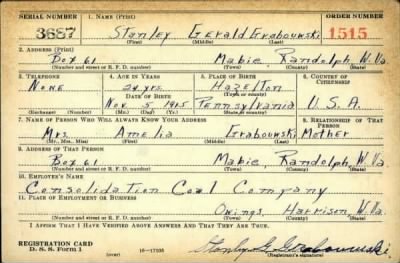 SERIAL NUMBER 1. NAME (Print) ORDER NUMBER
3687 Stanley Gerald Grabowski 1515
(First) (Middle) (Last)
2. ADDRESS (Print)
Box 61 Mabie, Randolph, W. Va.
(Number and street or R. F. D. number) (Town) (County) (State)
3. TELEPHONE 4. AGE IN YEARS 5. PLACE OF BIRTH 6. COUNTRY OF CITIZENSHIP
None 24 yrs. Hazelton
DATE OF BIRTH (Town or county)
Nov. 5 1915 Pennsylvania U.S.A.
(Exchange) (Number) (Mo.) (Day) (Yr.) (State or country)
7. NAME OF PERSON WHO WILL ALWAYS KNOW YOUR ADDRESS 8. RELATIONSHIP OF THAT PERSON
Mrs. Amelia Grabowski Mother
(Mr., Mrs., Miss) (First) (Middle) (Last)
9. ADDRESS OF THAT PERSON
Box 61 Mabie, Randolph, W. Va.
(Number and street or R. F. D. number) (Town) (County) (State)
10. EMPLOYER'S NAME
Consolidation Coal Company
11. PLACE OF EMPLOYMENT OR BUSINESS
Owings, Harrison, W. Va.
(Number and street or R. F. D. number) (Town) (County) (State)
I AFFIRM THAT I HAVE VERIFIED ABOVE ANSWERS AND THAT THEY ARE TRUE.
REGISTRATION CARD
D. S. S. Form 1 (over) Stanley G. Grabowski
(Registrant's signature)